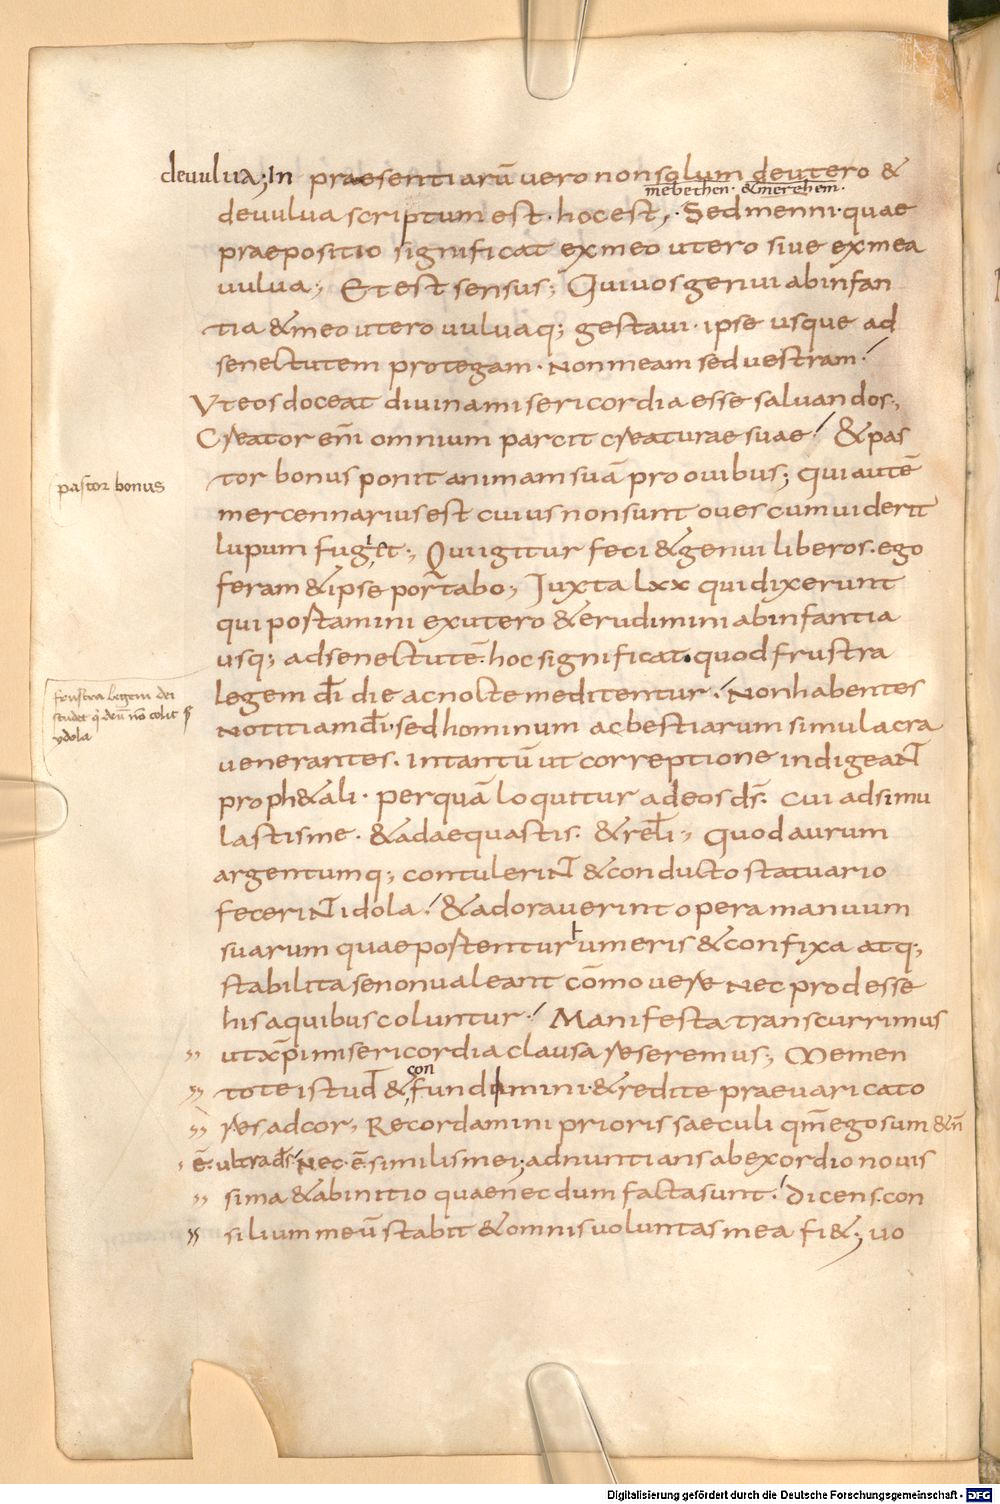 deuulua; In praesentiarū uero non solum de utero &
mebethen· & merehem·
de uulua scriptum est· hoc est,· Sed menni· quae
praepositio significat ex meo utero siue ex mea
uulua; Et est sensus; Qui uos genui ab infan
tia & meo utero uuluaq; gestaui· ipse usque ad
senectutem protegam· Non meam sed uestram·
Vt eos doceat diuina misericordia esse saluandos,
Creator eni omnium parcit creaturae suae· & pas
pastor bonus
tor bonus ponit animam suā pro ouibus; qui autē
mercennarius est cuius non sunt oues cum uiderit
lupum fugiet; Qui igitur feci & genui liberos· ego
feram & ipse portabo; Juxta lxx qui dixerunt
qui postamini ex utero & erudimini ab infantia
usq; ad senectutē· hoc significat· quod frustra
frustra legem dei
studet q deū nō colit s;
ydola
legem di die ac nocte meditentur· Non habentes
notitiam di· sed hominum ac bestiarum simulacra
uenerantes· in tantū ut correptione indigeant
proph&ali· per quā loquitur ad eos ds· cui adsimu
lastis me· & adaequastis· & reli; Quod aurum
argentumq; contulerint & conducto statuario
fecerint idola· & adorauerint opera manuum
suarum quae postentur umeris & confixa atq;
stabilita se non ualeant cōmouere nec prodesse
his a quibus coluntur· Manifesta transcurrimus
ut xpi misericordia clausa reseremus; Memen
con
tote istud & fundamini· & redite praeuaricato
res ad cor, Recordamini prioris saeculi qm ego sum & n
ē· ultra ds· nec ē· similis mei; adnuntians ab exordio nouis
sima & ab initio quae nec dum facta sunt· dicens. con
silium meū stabit & omnis uoluntas mea fi&; uo
Digitalisierung gefördert durch die Deutsche Forschungsgemeinschaft - DFG